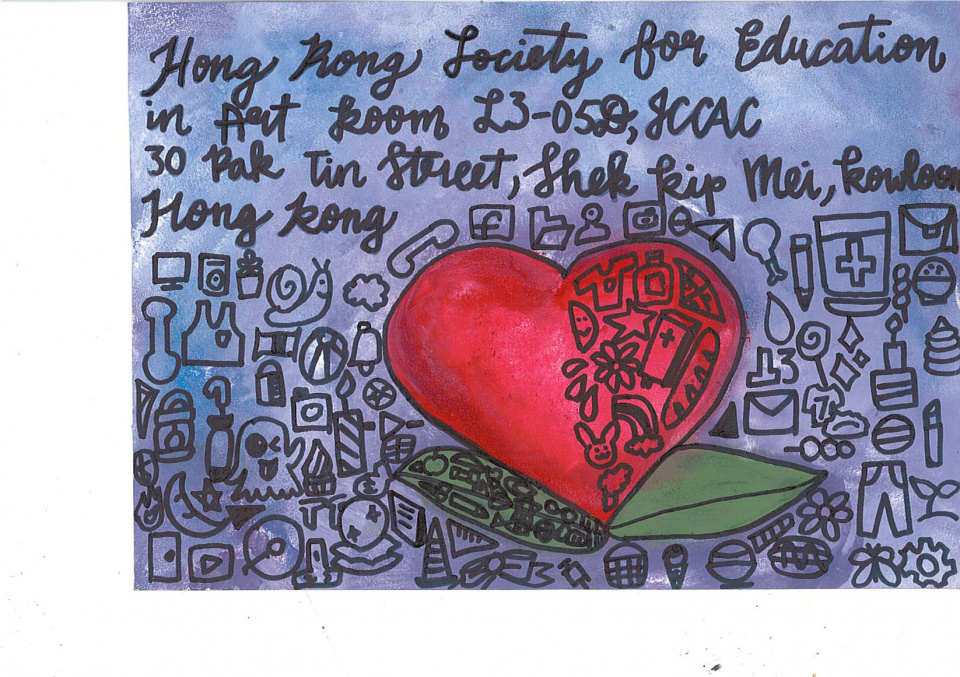 Hong Kong Society for Education
in Art Room L3-05D, JCCAC
30 Pak Tin Street, Shek Kip Mei, Kowloon
Hong Kong
13